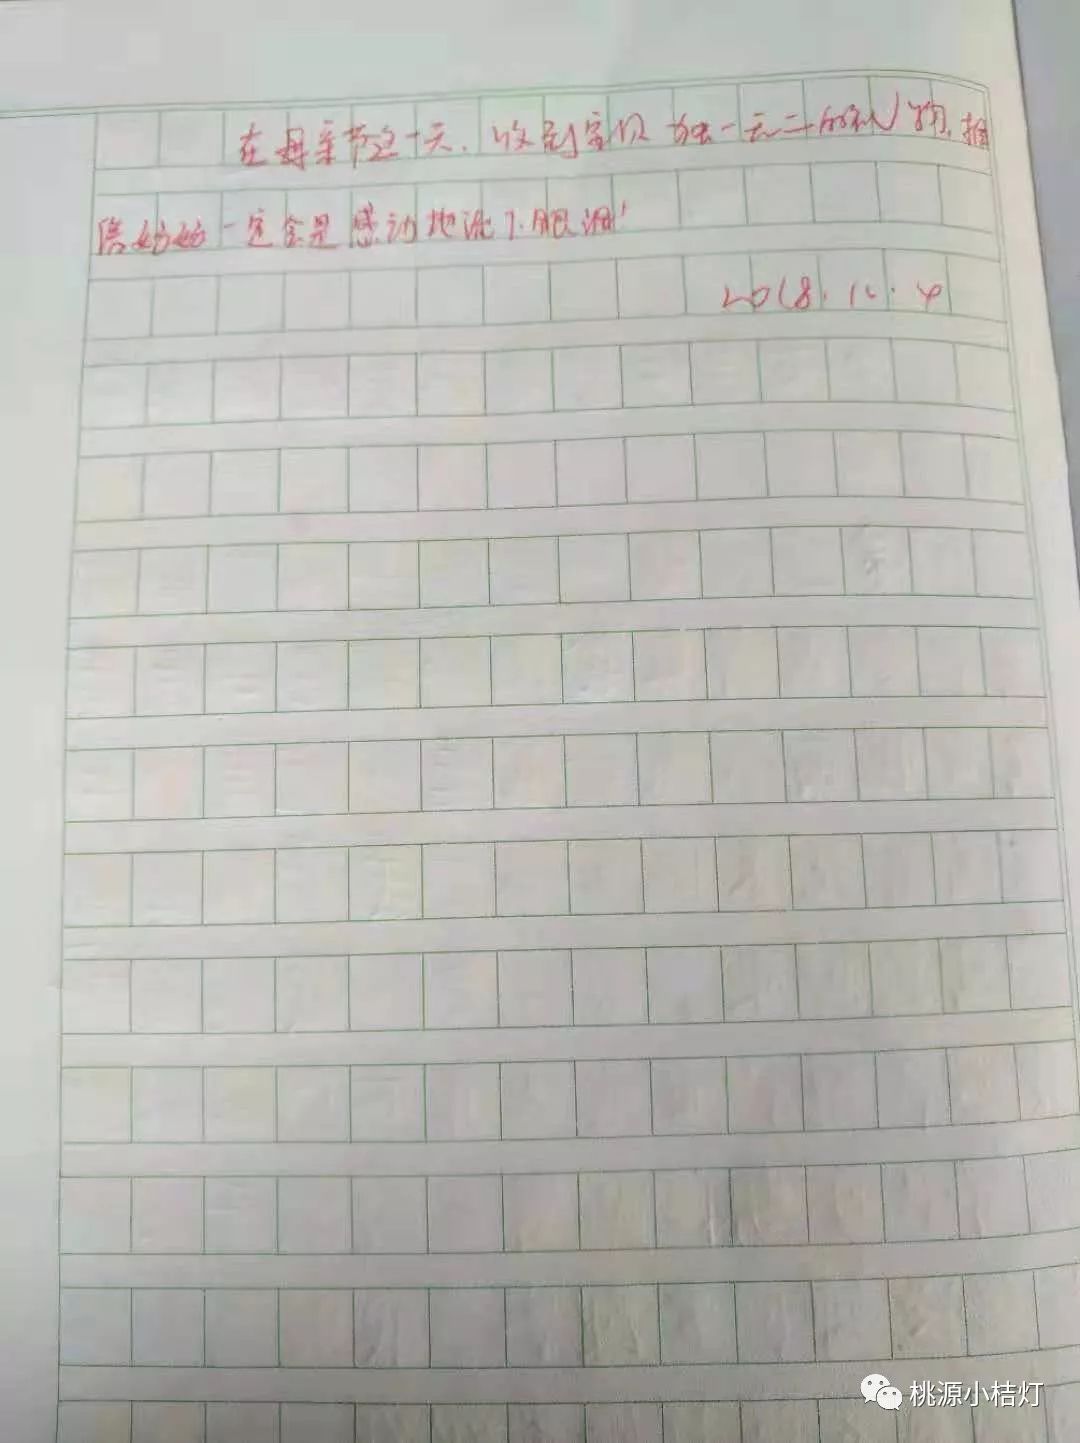 在母亲节这一天，收到宝贝独一无二的礼物，相
信妈妈一定会是感动地流下眼泪！
2018.12.4
桃源小桔灯